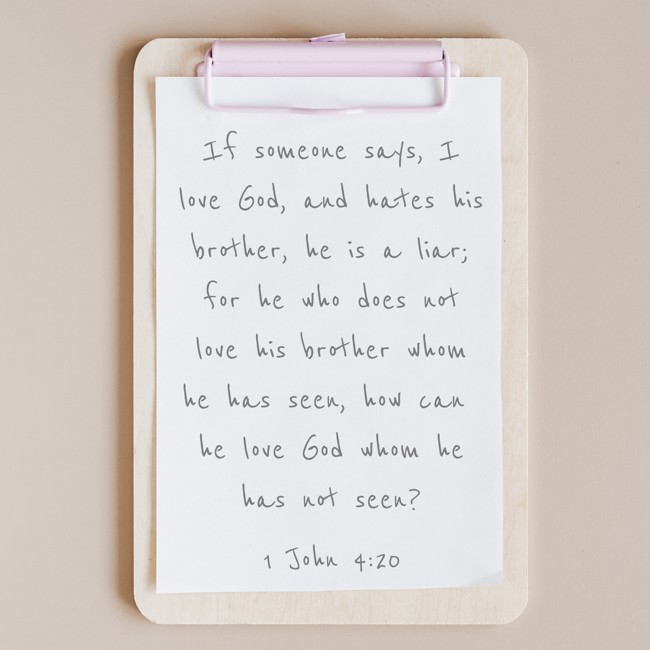 If someone says, I
love God, and hates his
brother, he is a liar;
for he who does not
love his brother whom
he has seen, how can
he love God whom he
has not seen?
1 John 4:20